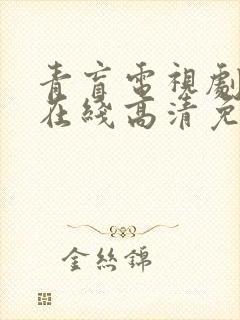 青盲電視劇
在綫高清免
金丝錦